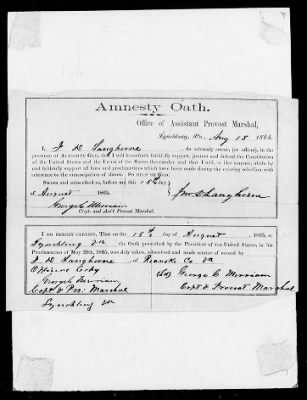 Amnesty Oath.
Office of Assistant Provost Marshal,
Lynchburg, Va., Aug 15 1865.
I, J D Langhorne do solemnly swear, (or affirm), in the
presence of ALMIGHTY GOD, that I will henceforth faithfully support, protect and defend the Constitution
of the United States and the Union of the States thereunder, and that I will, in like manner, abide by
and faithfully support all laws and proclamations which have been made during the existing rebellion with
reference to the emancipation of slaves. SO HELP ME GOD.
Sworn and subscribed to, before me this 15th
of August 1865. Langhorne
George C Merriam
Capt. and Ass't Provost Marshal.
I DO HEREBY CERTIFY, That on the 15th day of August 1865, at
Lynchburg Va the Oath prescribed by the President of the United States, in his
Proclamation of May 29th, 1865, was duly taken, subscribed and made matter of record by
J D Langhorne of Roanoke Co Va
Official Copy
George C Merriam
George C Merriam
Capt & Provost Marshal
Capt & Pro. Marshal
Lynchburg Va